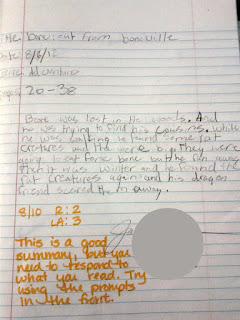 Title: bone: out from boneville
Date: 8/6/12
Genre: Adventure
Pages: 20-38
Bone was lost in the woods. And
he was trying to find his cousins. While
he was walking he found some rat
creatures and they were big. They were
going to eat fone bone but he ran away.
Then it was winter and he found the
rat creatures again and his dragon
friend scared them away.
8/10 R: 2
LA: 3
This is a good
summary, but you
need to respond to
what you read. Try
using the prompts
in the front.